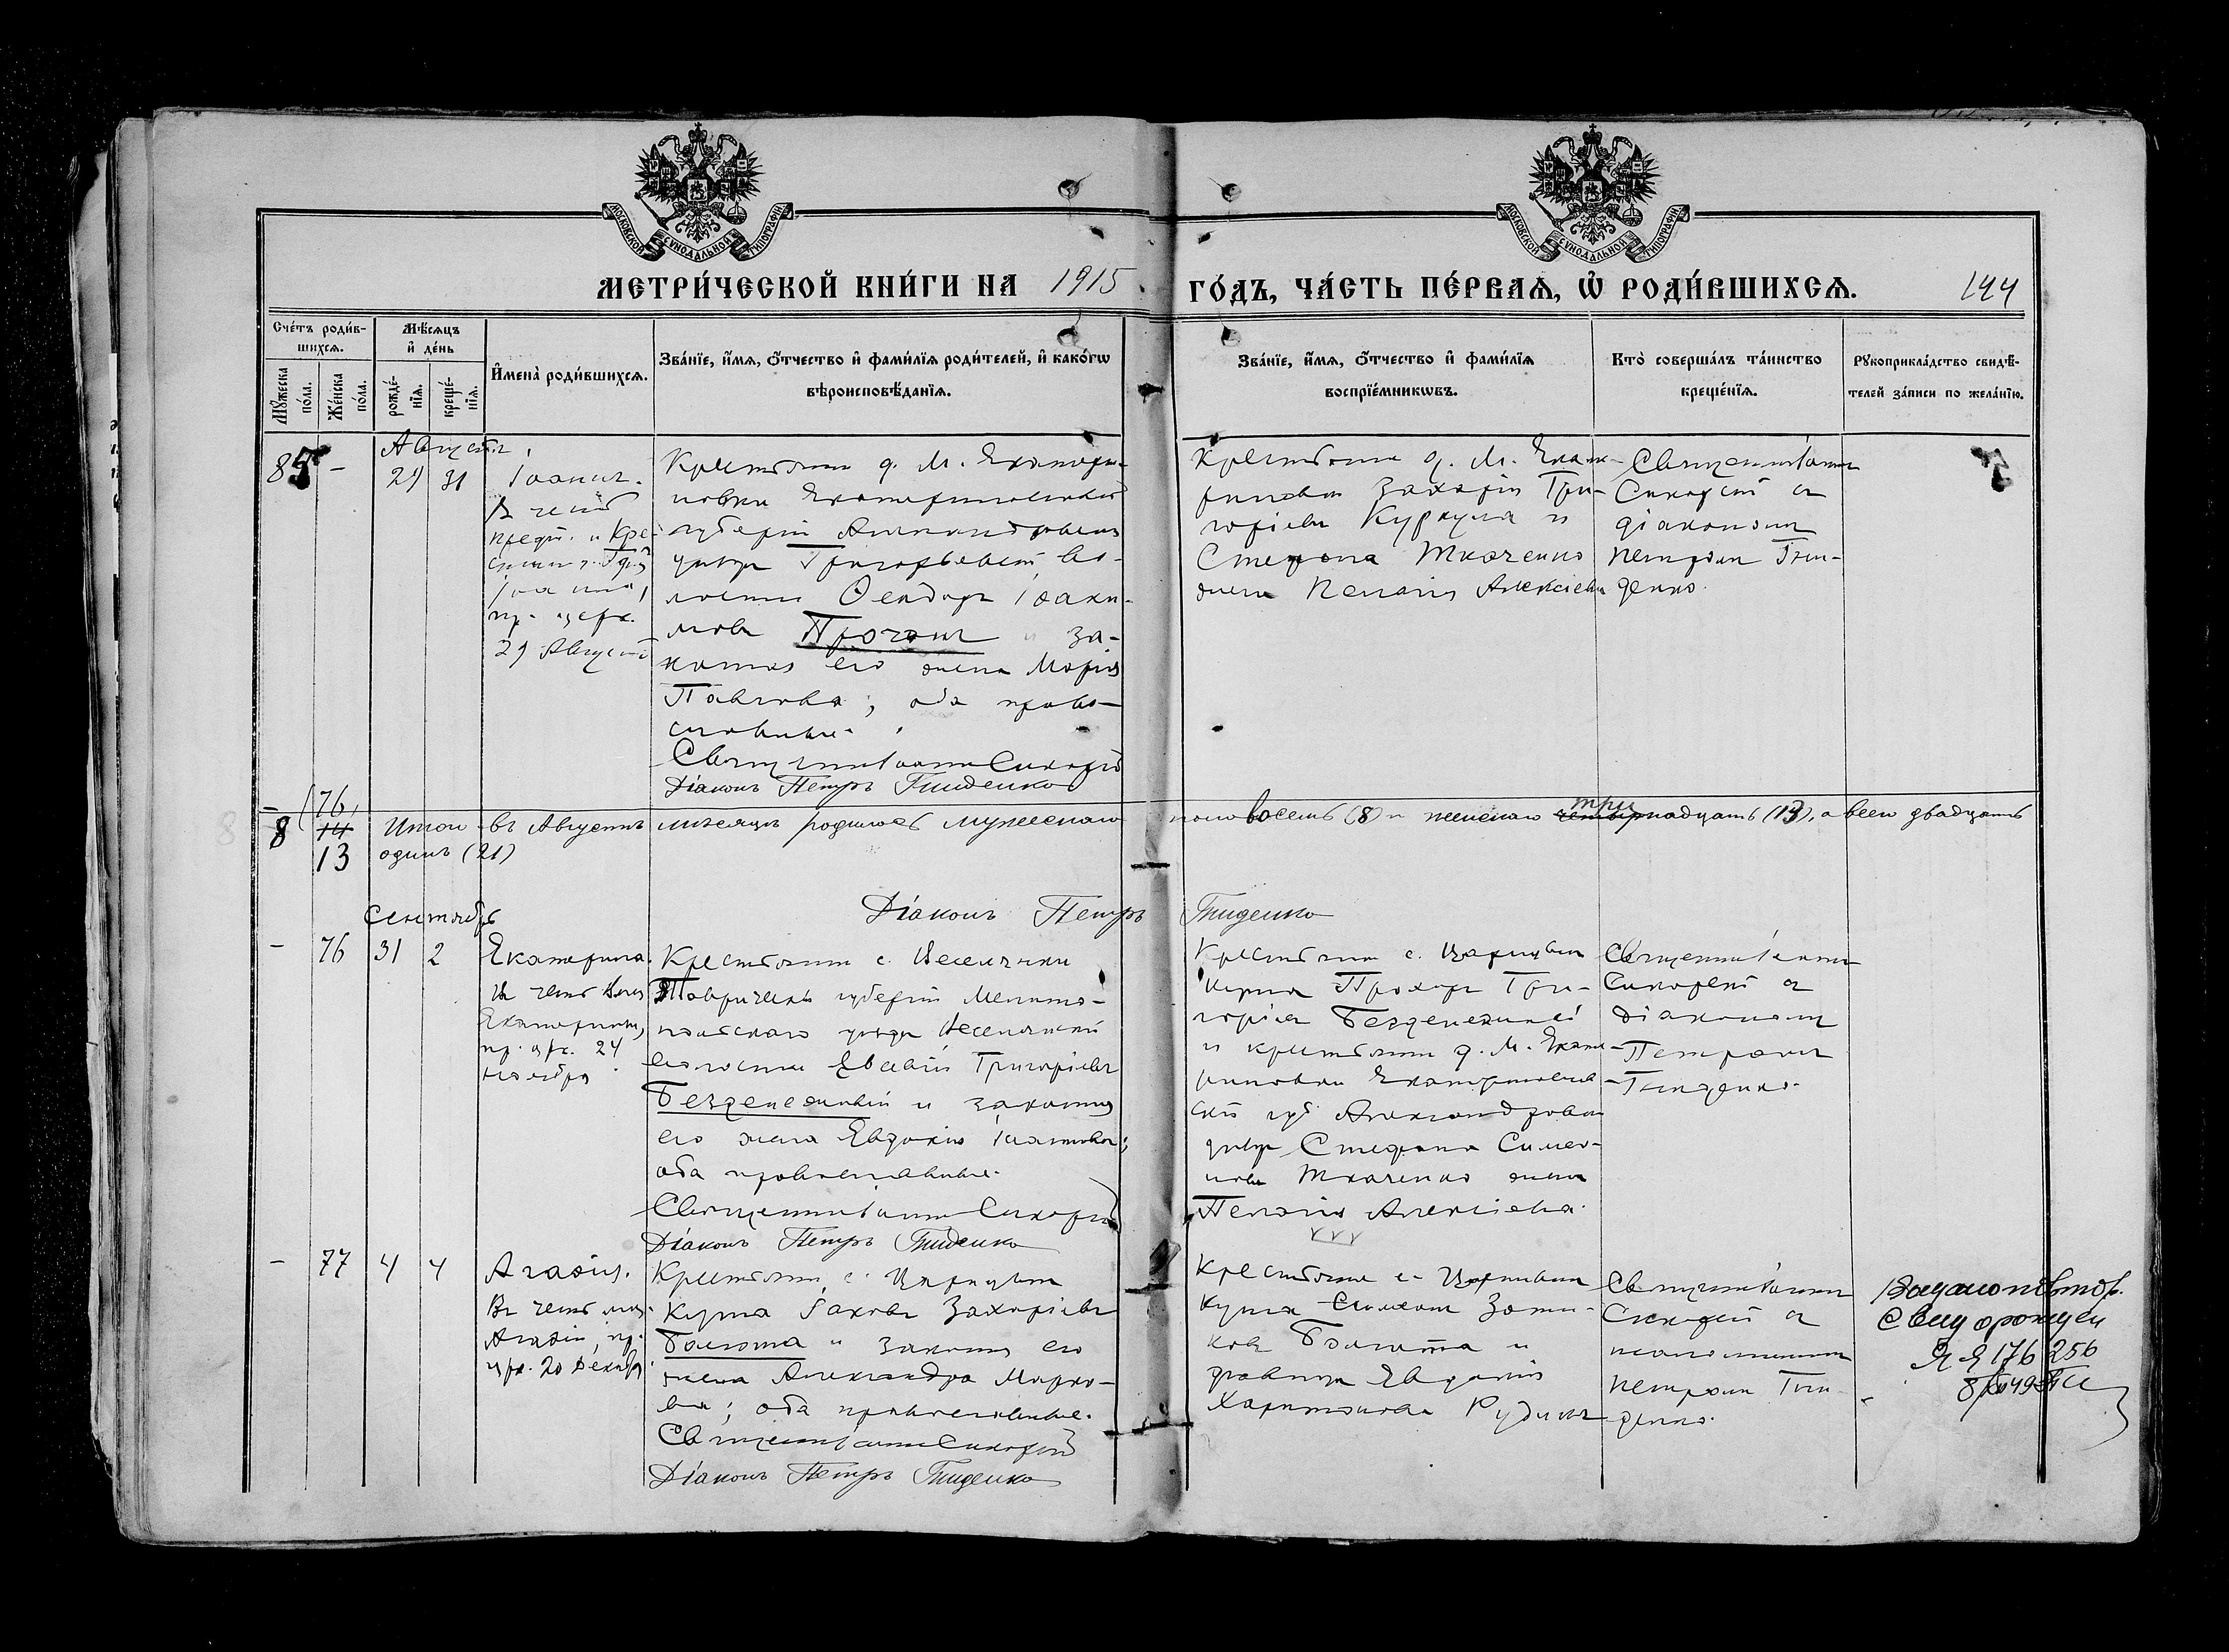 МОСКОВСКОЙ СѴНОДАЛЬНОЙ ТИПОГРАФІИ
МОСКОВСКОЙ СѴНОДАЛЬНОЙ ТИПОГРАФІИ
МЕТРИ́ЧЕСКОЙ КНИ́ГИ НА 1915 ГО́ДЪ, ЧА́СТЬ ПЕ́РВАѦ, Ѡ РОДИ́ВШИХСѦ. 144
Сче́тъ роди́в-
шихсѧ.
Мꙋ́жеска
по́ла.
Же́нска
по́ла.
Мѣ́сѧцъ
и де́нь
рожде́-
нїѧ.
креще́-
нїѧ.
Имена̀ роди́вшихсѧ.
Зва́нїе, и́мѧ, о́тчество и фами́лїѧ роди́телей, и како́гѡ
вѣроисповѣ́данїѧ.
Зва́нїе, и́мѧ, о́тчество и фами́лїѧ
воспрїе́мникѡвъ.
Кто̀ соверша́лъ та́инство
креще́нїѧ.
Рꙋкоприкла́дство свидѣ́-
телей за́писи по жела́нїю.
Августъ
85 - 29 31
Іоаннъ.
В честь
Предт. и Кре-
стит. Гдня
Іоанна,
пр. церк.
29 Августа
Крестьянинъ д. М. Екатери-
новки Екатеринославской
губерніи Александровскаго
уѣзда Григорьевской во-
лости Ѳеодоръ Іоаки-
мовъ Прочан и за-
конная его жена Марія
Павлова; оба право-
славные.
Священникъ Іоаннъ Сикорскій
Діаконъ Петръ Гниденко
Крестьяне д. М. Екате-
риновки Захарія Гри-
горіевъ Куркула и
Стефана Ткаченко
жена Пелагія Алексіева
Священникъ Іоаннъ
Сикорскій съ
діакономъ
Петромъ Гни-
денко.
- 76
8 14 Итого въ Августѣ мѣсяцѣ родилось мужескаго пола восемь (8) и женскаго три четырнадцать (13), а всего двадцать
13 одинъ (21)
Діаконъ Петръ Гниденко
Сентябрь
- 76 31 2
Екатерина.
Въ честь вмц
Екатерины,
пр. црк. 24
ноября
Крестьянинъ с. Веселянки
Таврической губерніи Мелито-
польскаго уѣзда Веселянской
волости Евсевій Григоріевъ
Безденежный и законная
его жена Евдокія Игнатьева;
оба православные.
Священникъ Іоаннъ Сикорскій
Діаконъ Петръ Гниденко
Крестьяне с. Царицына
кута Прохоръ Гри-
горіевъ Безденежный
и крестьянина д. М. Екате-
риновки Екатеринослав-
ской губ. Александровскаго
уѣзда Стефана Симео-
нова Ткаченко жена
Пелагія Алексіева.
Священникъ Іоаннъ
Сикорскій съ
Діакономъ
Петромъ
Гниденко.
- 77 4 4
Агафія.
Въ честь муч.
Агафіи, пр.
црк. 28 декабря
Крестьянинъ с. Царицына
Кута Іаковъ Захаріевъ
Болгота и законная его
жена Александра Марко-
ва; оба православные.
Священникъ Іоаннъ Сикорскій
Діаконъ Петръ Гниденко
Крестьяне с. Царицына
Кута Симеонъ
Болгота и
дѣвица Евдокія
Харитонова
Священникъ Іоаннъ
Сикорскій съ
псаломщикомъ
Петромъ Гни-
денко.
Выдано повтор.
Свид о рожден
ЯЯ 176 256